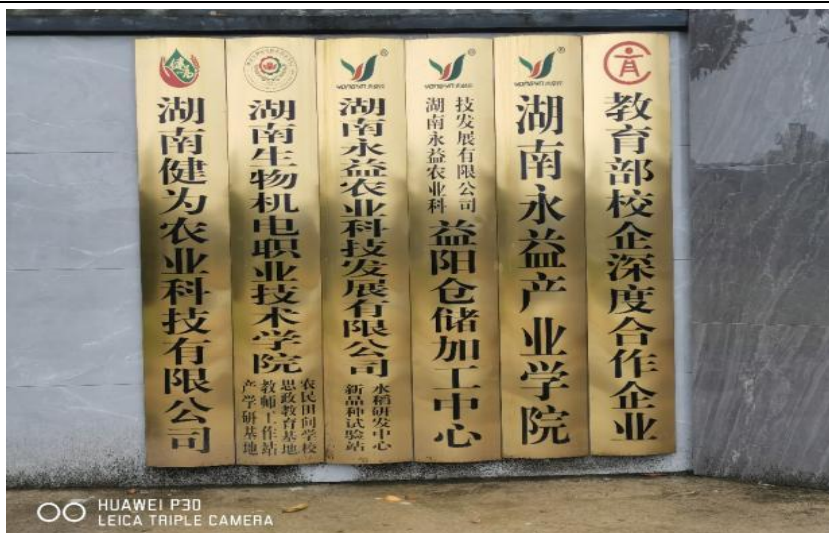 健为
湖南健为农业科技有限公司
湖南生物机电职业技术学院
农民田间学校
思政教育基地
教师工作站
产学研基地
YONGYI 永益
湖南永益农业科技发展有限公司
水稻研发中心
新品种试验站
YONGYI 永益
湖南永益农业科
技发展有限公司
益阳仓储加工中心
YONGYI 永益
湖南永益产业学院
教育部校企深度合作企业
HUAWEI P30
LEICA TRIPLE CAMERA